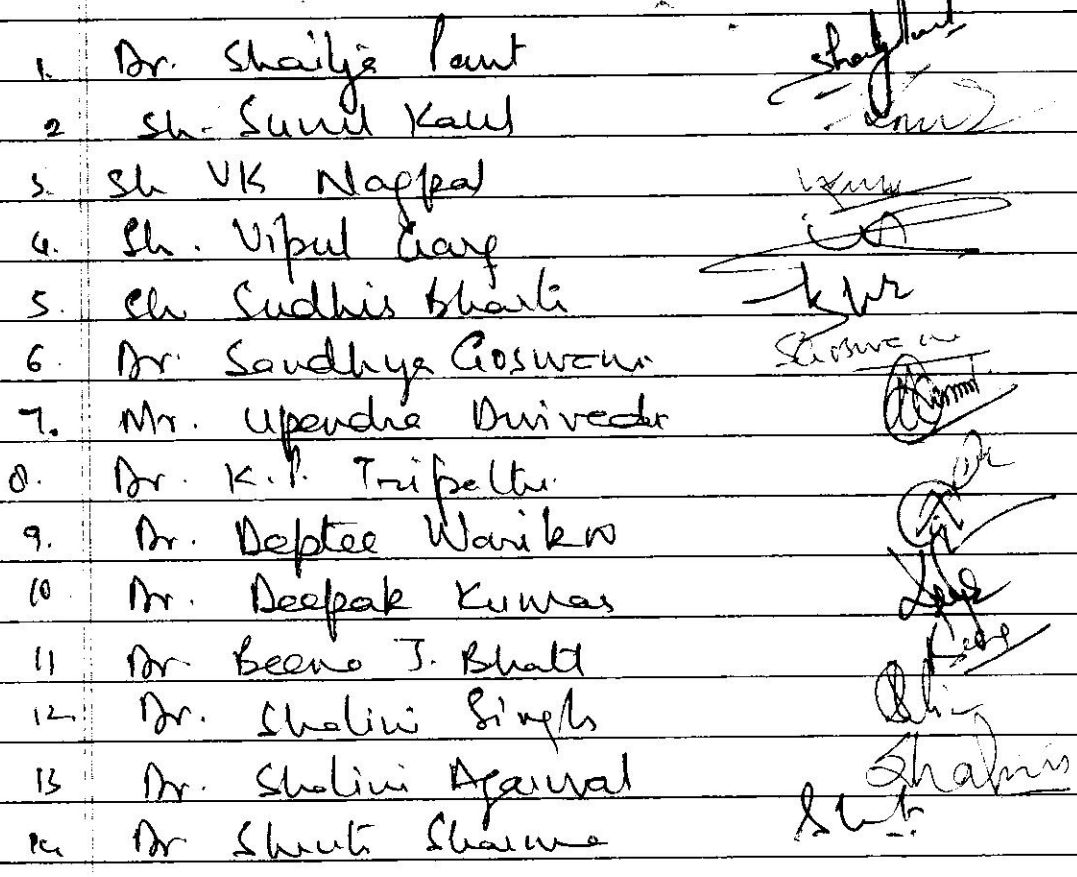 1. Dr. Shailja Pant
2 Sh. Sunil Kaul
3. Sh VK Nagpal
4. Sh. Vipul Garg
5. Sh Sudhir Bharti
6. Dr. Sandhya Goswami Sgoswami
7. Mr. Upendra Dwivedi
8. Dr. K.P. Tripathi
9. Dr. Deptee Warikoo
10 Dr. Deepak Kumar
11 Dr. Beena J. Bhatt
12. Dr. Shalini Singh
13 Dr. Shalini Agarwal Shalini
14 Dr Shruti Sharma